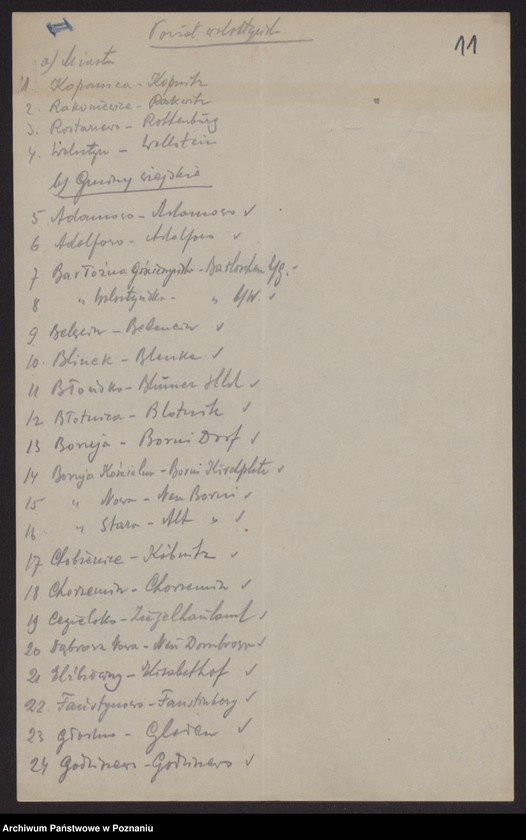 II
11
Powiat wolsztyński
a) Miasta
1 Kopanica - Kopnitz
2. Rakoniewice - Rakwitz
3. Rostarzewo - Rothenburg
4. Wolsztyn - Wollstein
b) Gminy wiejskie
5 Adamowo - Adamowo ✓
6 Adolfowo - Adolfowo ✓
7 Barłożna Gościeszyńska - b/g. ✓
8 „ Wolsztyńska - „ b/W. ✓
9 Belęcin - Belencin ✓
10. Blinek - Blenke ✓
11 Błońsko - Hld ✓
12 Błotnica - Blotnik ✓
13 Boruja - Borui Dorf ✓
14 Boruja Kościelna - Borui Kirchplatz ✓
15 „ Nowa - Neu Borui ✓
16 „ Stara - Alt „ ✓
17 Chobienice - Köbnitz ✓
18 Chorzemin - Chorzemin ✓
19 Cegielsko - Ziegelhauland ✓
20 Dąbrowa Nowa - Neu Dombrowo ✓
21 Elżbieciny - Elisabethof ✓
22. Faustynowo - Faustinberg ✓
23 Głodno - Gloden ✓
24 Godziszewo - Godziszewo ✓
Archiwum Państwowe w Poznaniu